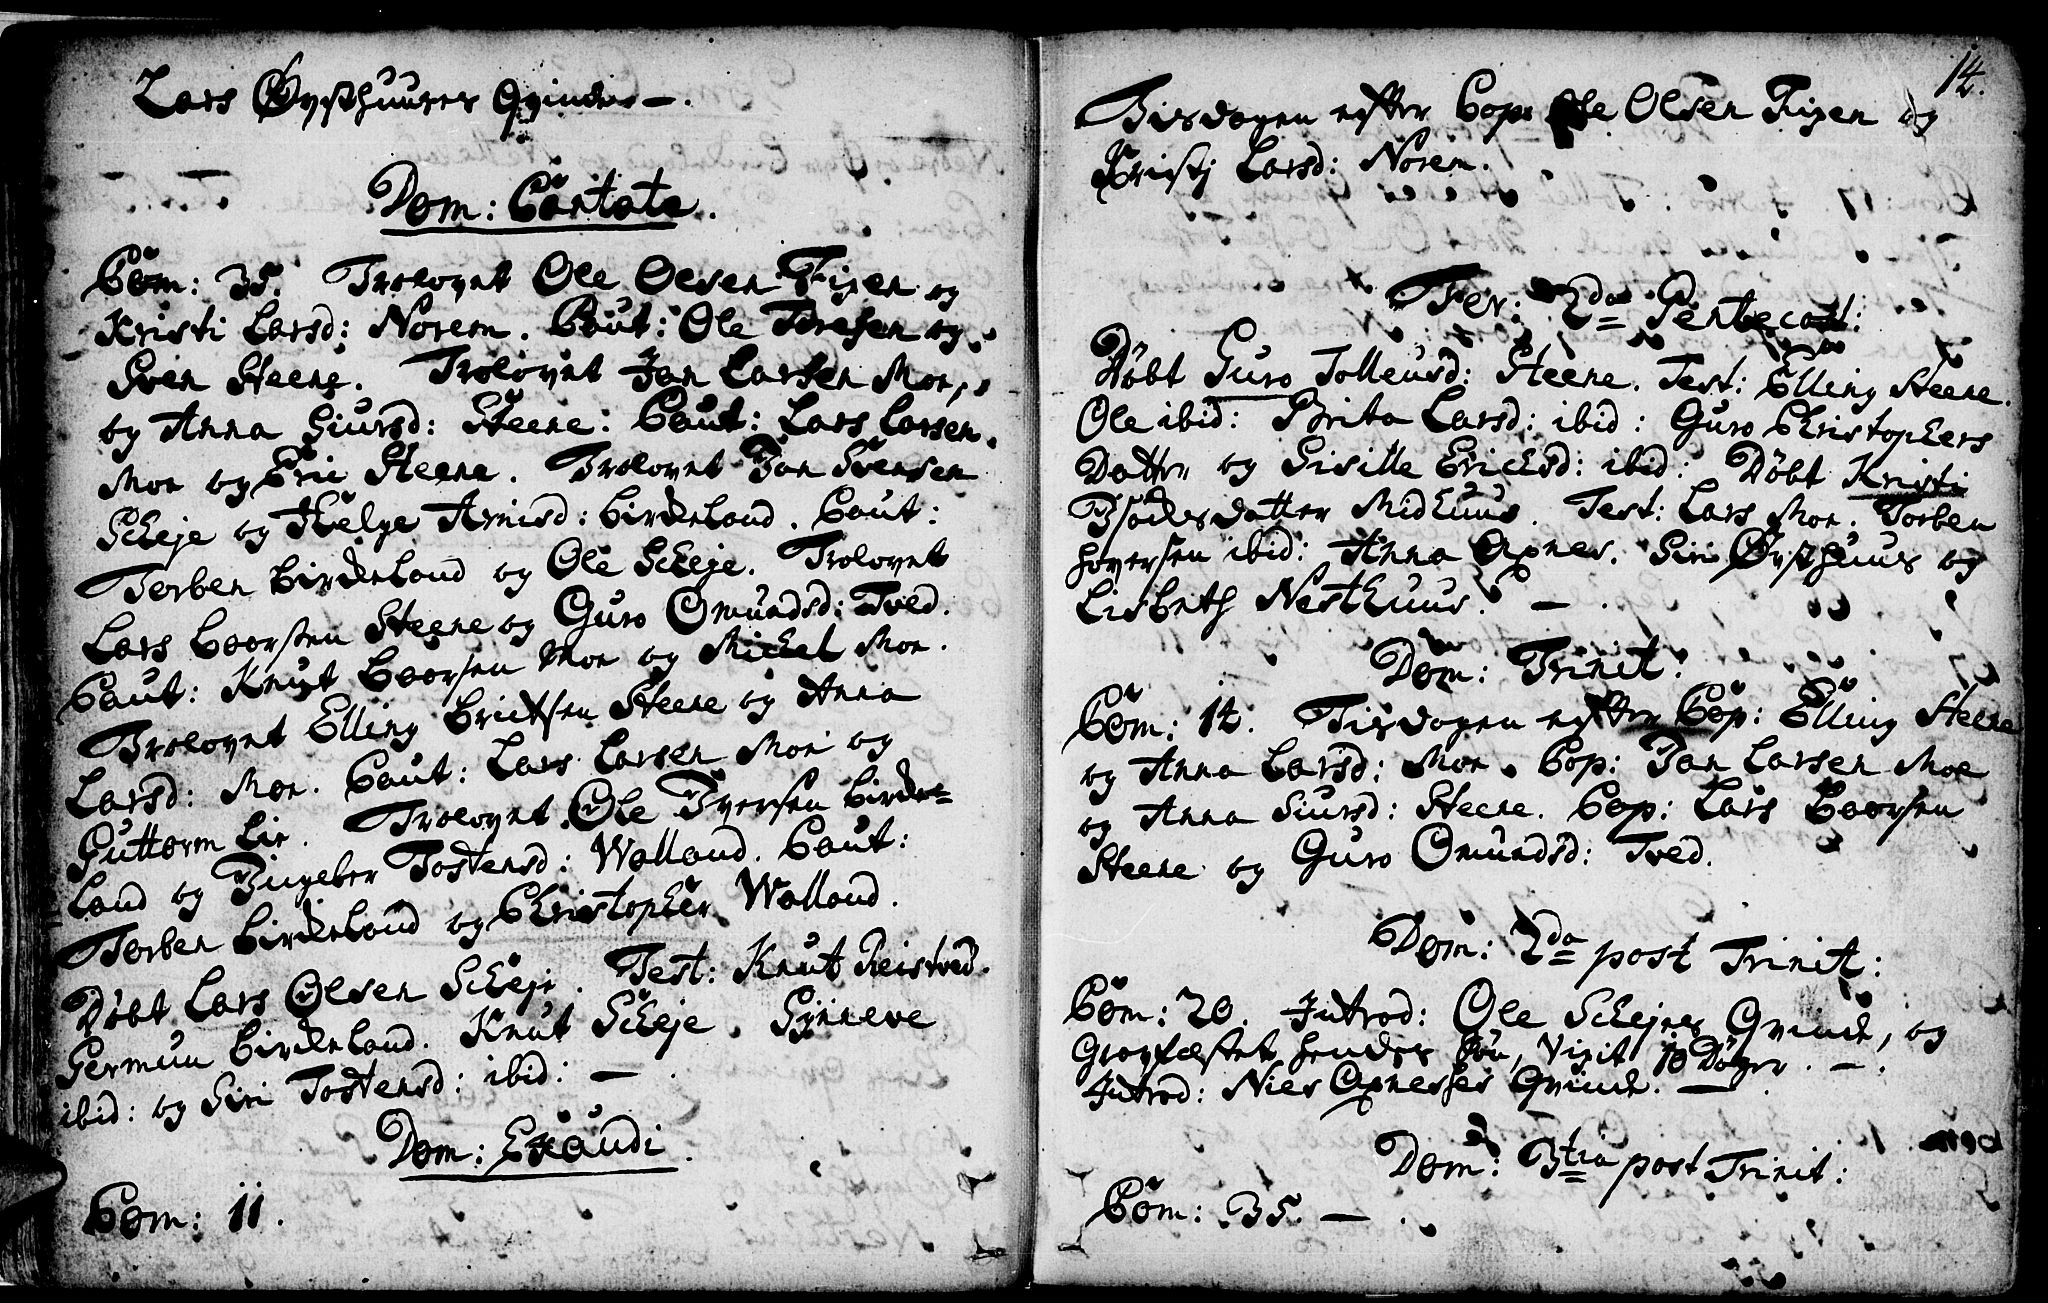 Lars Øysthuuses Qvinde —.
Dom: Cantate.
Com: 35. Trolovet Ole Olsen Figen og
Kristi Larsd: Norem. Caut: Ole Toresen og
Sven Steene. Trolovet Jan Larsen Moe,
og Anna Siursd: Steene: Caut: Lars Larsen
Moe og Eric Steene. Trolovet Jan Svensen
Scheje og Helge Arnisd: Birkeland. Caut:
Torben Birkeland og Ole Scheje. Trolovet
Lars Baarsen Steene og Guro Omundsd: Tved.
Caut: Knut Baarsen Moe og Michel Moe.
Trolovet Elling Ericksen Steene og Anna
Larsd: Moe. Caut: Lars Larsen Moe og
Guttorm Lie. Trolovet Ole Iversen Birke-
land og Ingeber Tostensd: Walland. Caut:
Torben Birkeland og Christopher Walland.
Døbt Lars Olsen Scheje. Test: Knut Reistved.
Germun Birkeland. Knut Scheje. Synneve
ibid: og Siri Tostensd: ibid: —.
Dom: Exaudi.
Com: 11.
14.
Tisdagen efter Cop: Ole Olsen Figen og
Kristj Larsd: Norem.
Fer: 2da Pentecost:
Døbt Guro Tolleusd: Steene. Test: Elling Steene.
Ole ibid: Brita Larsd: ibid: Guro Christophers
Datter og Sisille Ericksd: ibid: Døbt Kristi
Datter Midhuus. Test: Lars Moe. Torben
Siversen ibid: Anna Axnes. Siri Øysthuus og
Lisbeth Nesthuus. —.
Dom: Trinit:
Com: 14. Tisdagen efter Cop: Elling Steene
og Anna Larsd: Moe. Cop: Jan Larsen Moe
og Anna Siursd: Steene. Cop: Lars Baarsen
Steene og Guro Omundsd: Tved.
Dom: 2da post Trinit:
Com: 20. Introd: Ole Schejes Qvinde, og
Graafæstet hendes Søn, Vixit 10 Døger. —.
Introd: Niels Axnesses Qvinde. —.
Dom: 3tia post Trinit:
Com: 35. —.